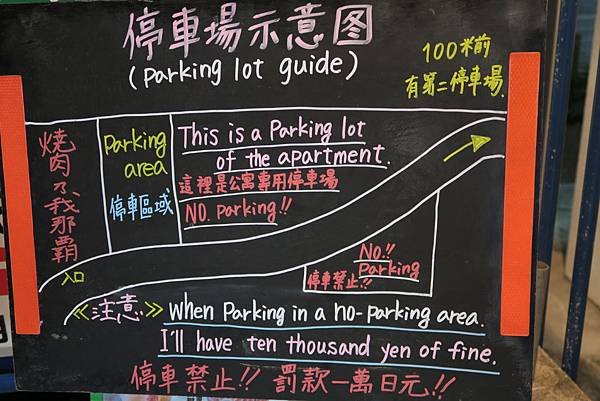 停車場示意图
(Parking lot guide)
100米前
有第二停車場.
焼肉乃我那覇
入口
Parking
area
停車區域
This is a Parking lot
of the apartment.
這裡是公寓專用停車場
NO. Parking!!
No.!!
Parking
停車禁止!!
≪注意≫ When Parking in a no-parking area.
I'll have ten thousand yen of fine.
停車禁止!! 罰款一萬日元!!